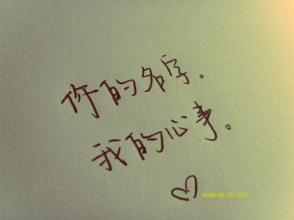 你的名字。
我的心事。